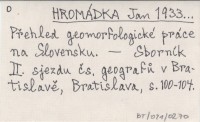 D
HROMÁDKA Jan 1933...
Přehled geomorfologické práce
na Slovensku. — Sborník
II. sjezdu čs. geografů v Bra-
tislavě, Bratislava, s. 100-104.
BF/071/0270